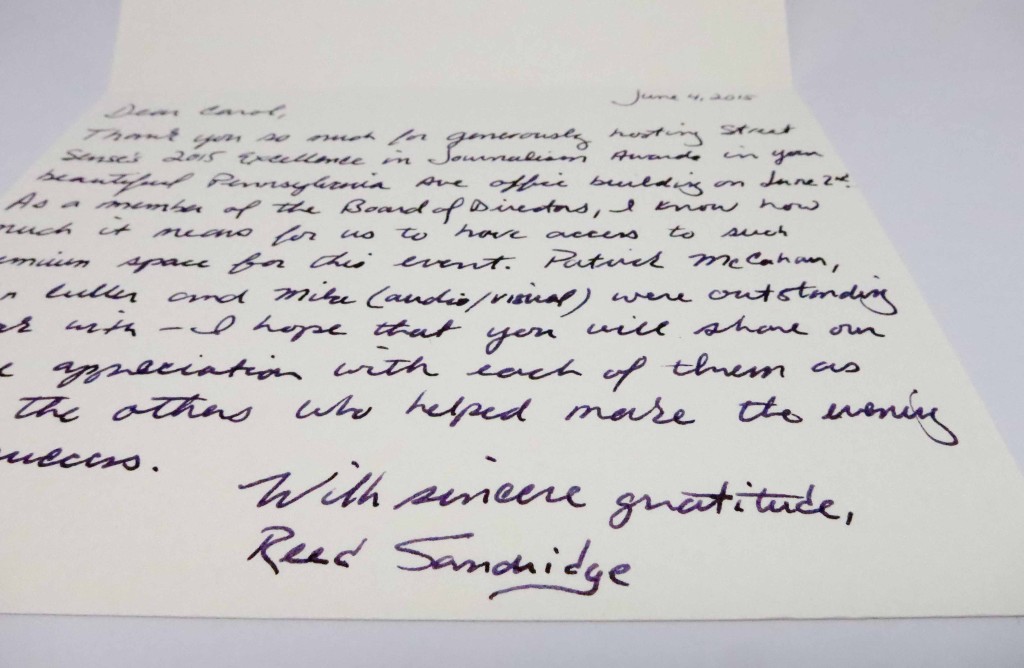 June 4, 2015
Dear Carol,
Thank you so much for generously hosting Street
Sense's 2015 Excellence in Journalism Awards in your
beautiful Pennsylvania Ave office building on June 2nd.
As a member of the Board of Directors, I know how
much it means for us to have access to such
emium space for this event. Patrick McCahan,
and Mike (audio/visual) were outstanding
with – I hope that you will share our
appreciation with each of them as
the others who helped make the evening
success.
With sincere gratitude,
Reed Sandridge